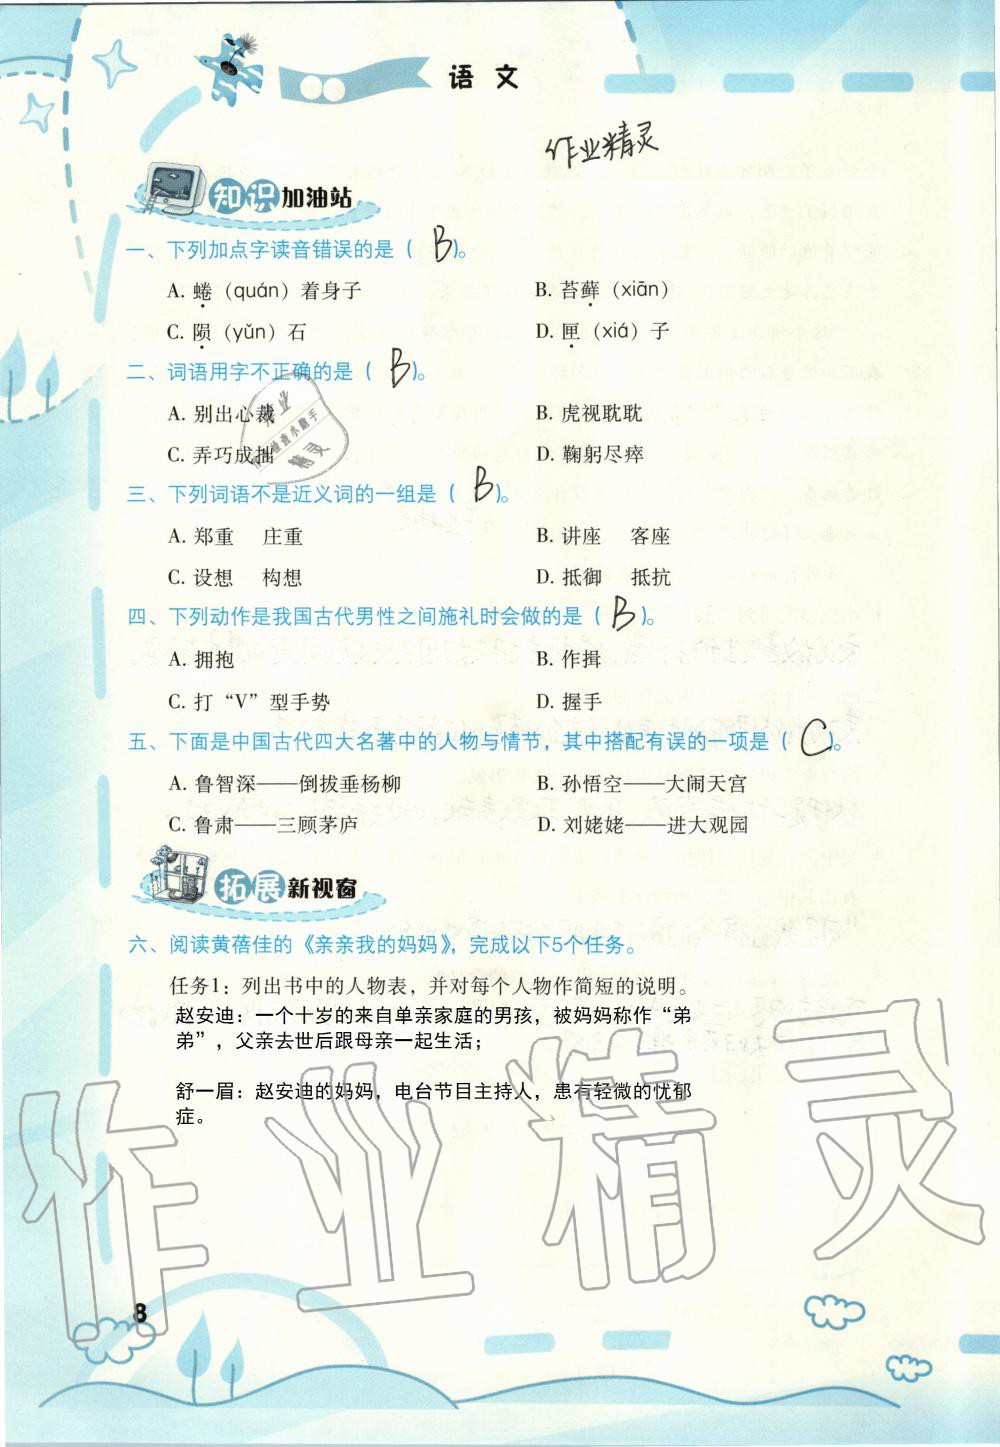 语文
作业精灵
知识加油站
一、下列加点字读音错误的是（ B ）。
A. 蜷（quán）着身子 B. 苔藓（xiān）
C. 陨（yǔn）石 D. 匣（xiá）子
二、词语用字不正确的是（ B ）。
A. 别出心裁 B. 虎视耽耽
C. 弄巧成拙 D. 鞠躬尽瘁
三、下列词语不是近义词的一组是（ B ）。
A. 郑重 庄重 B. 讲座 客座
C. 设想 构想 D. 抵御 抵抗
四、下列动作是我国古代男性之间施礼时会做的是（ B ）。
A. 拥抱 B. 作揖
C. 打“V”型手势 D. 握手
五、下面是中国古代四大名著中的人物与情节，其中搭配有误的一项是（ C ）。
A. 鲁智深——倒拔垂杨柳 B. 孙悟空——大闹天宫
C. 鲁肃——三顾茅庐 D. 刘姥姥——进大观园
拓展新视窗
六、阅读黄蓓佳的《亲亲我的妈妈》，完成以下5个任务。
任务1：列出书中的人物表，并对每个人物作简短的说明。
赵安迪：一个十岁的来自单亲家庭的男孩，被妈妈称作“弟
弟”，父亲去世后跟母亲一起生活；
舒一眉：赵安迪的妈妈，电台节目主持人，患有轻微的忧郁
症。
作业精灵
8